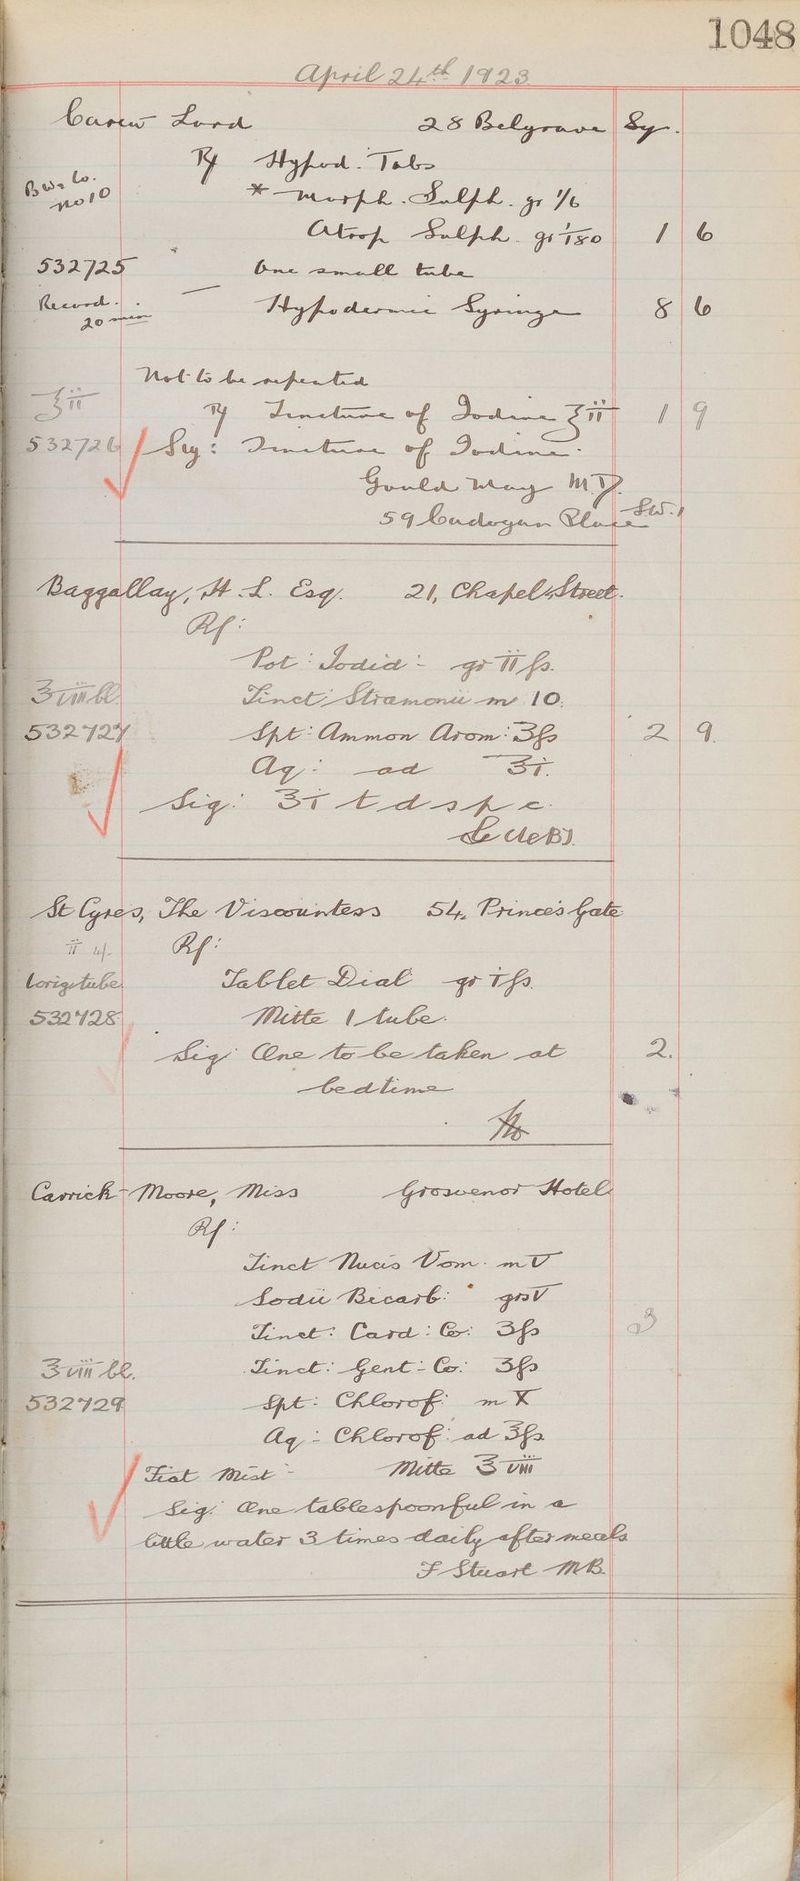 1048
April 24th 1923
Carew Lord 28 Belgrave Sq.
Rx Hypod. Tabs
B.W. & Co. No 10
* Morph. Sulph. gr 1/6
Atrop Sulph. gr 1/180 1 6
532725 One small tube
Record. 20 min
Hypodermic Syringe 8 6
Not to be repeated
ʒii
Rx Tincture of Iodine ʒii 1 9
532726 Sig: Tincture of Iodine.
Gould May M.D.
59 Cadogan Place S.W.1
Baggallay, H. L. Esq. 21, Chapel Street.
Rx:
Pot: Iodid: gr iiſs.
℥viii bl. Tinct: Stramonii m 10.
532727 Spt: Ammon Arom: ʒſs 2 9.
Aq: ad ℥i.
Sig: ℥i t d s p c.
St Cyres, The Viscountess 54, Princes Gate
ii 4/-
Rx:
1 orig: tube Tablet Dial gr iſs.
532728 Mitte 1 tube.
Sig: One to be taken at 2.
bedtime
Carrick-Moore, Miss Grosvenor Hotel
Rx:
Tinct Nucis Vom. m V
Sodii Bicarb: grs V
Tinct: Card: Co: ʒſs 3
℥viii bl. Tinct: Gent: Co: ʒſs
532729 Spt: Chlorof: m X
Aq: Chlorof: ad ℥ſs
Fiat Mist: Mitte ℥viii
Sig: One tablespoonful in a
little water 3 times daily after meals
F Stuart M.B.